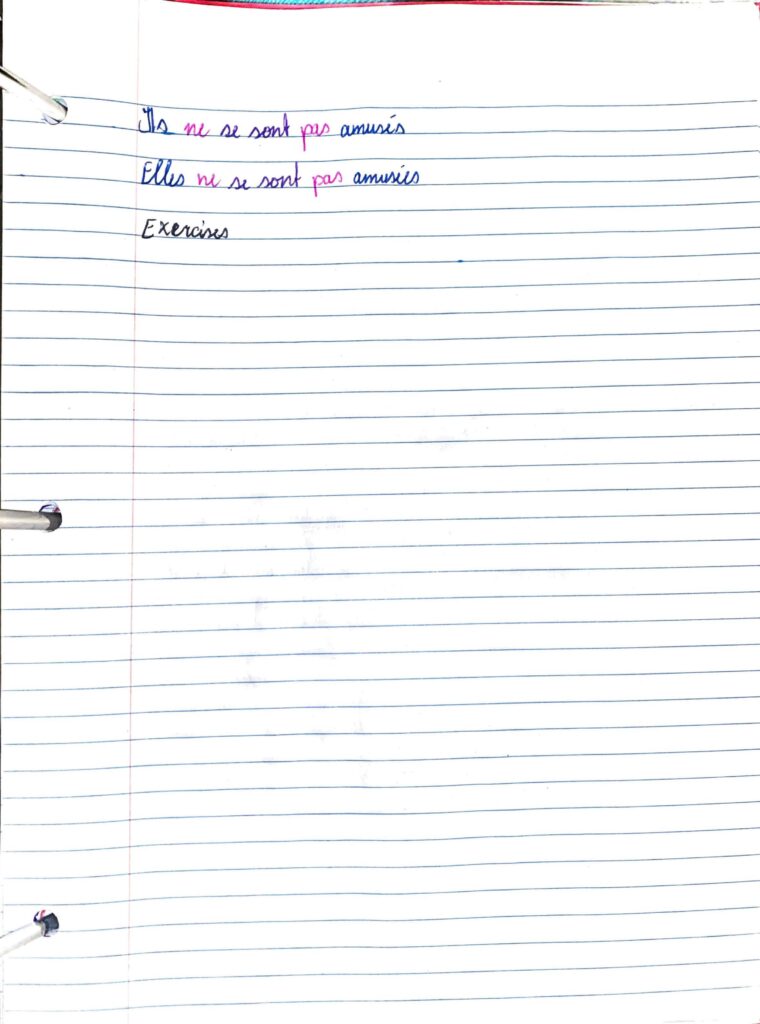 Ils ne se sont pas amusés
Elles ne se sont pas amusées
Exercises